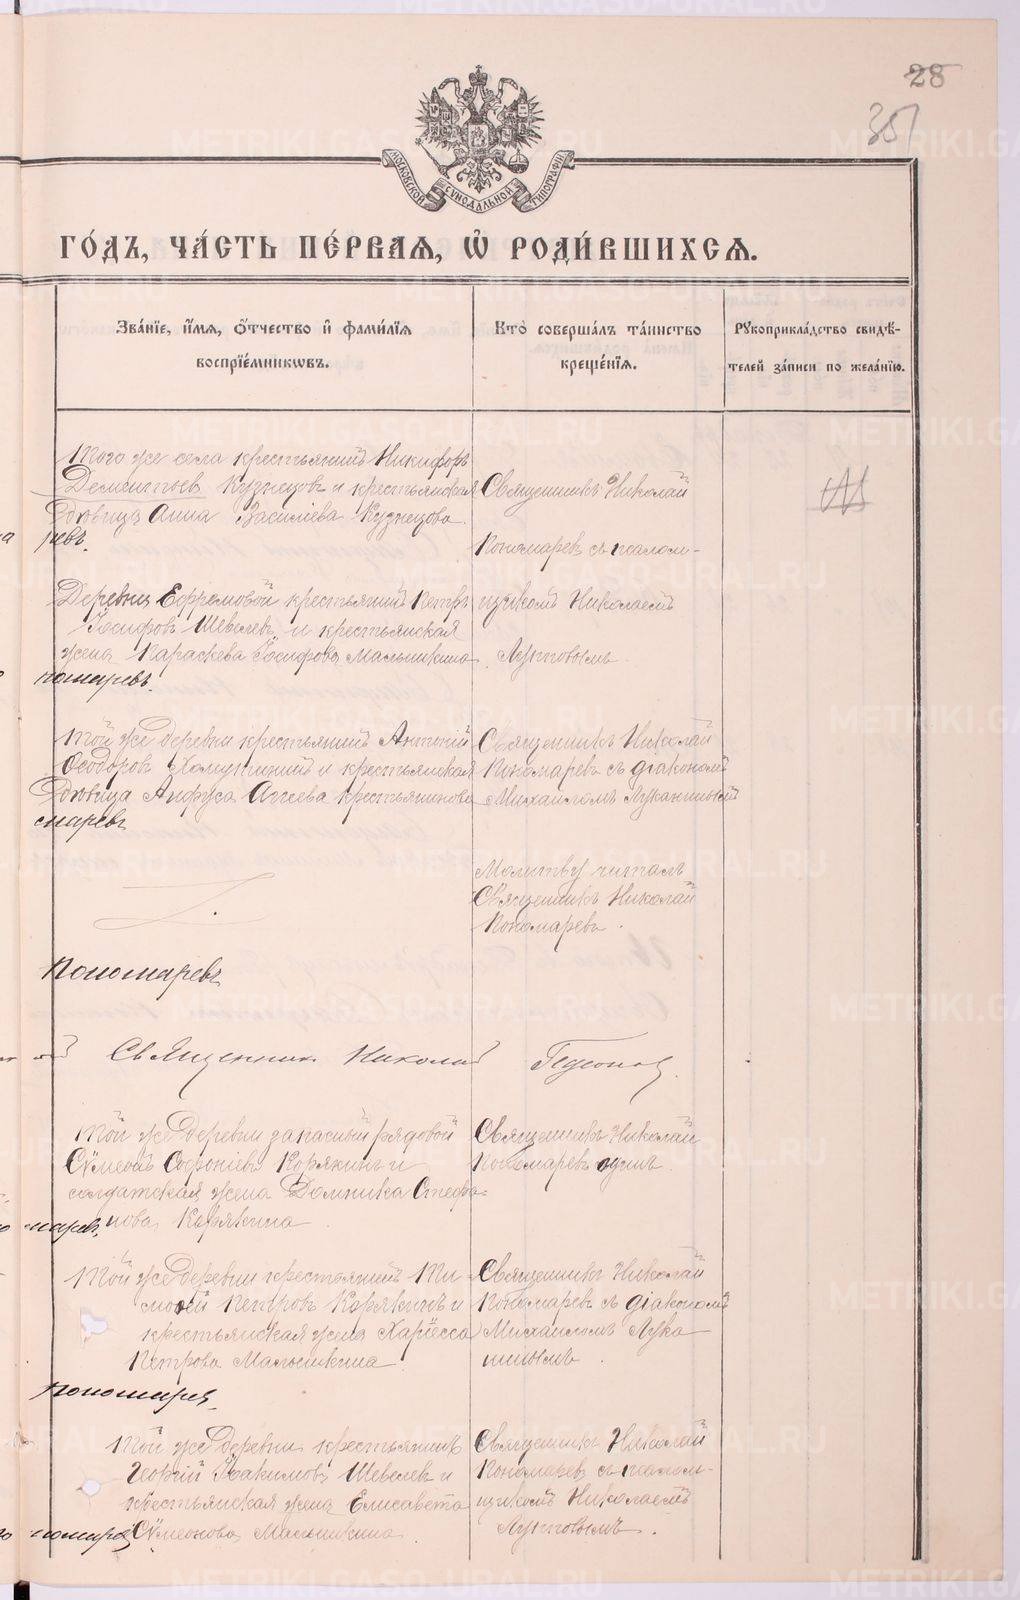 28
35
МОСКОВСКОЙ СѴНОДАЛЬНОЙ ТИПОГРАФІИ
ГО́ДЪ, ЧА́СТЬ ПЕ́РВАЯ, Ѽ РОДИ́ВШИХСЯ.
Зва́нїе, и́мя, ѻ́тчество и҆ фами́лїя
воспрїе́мникωвъ.
Кто̀ соверша́лъ та́инство
креще́нїя.
Рꙋкоприкла́дство свидѣ́-
телей за́писи по жела́нїю.
Того же села крестьянинъ Никифоръ
Дементьев Кузнецовъ и крестьянская
вдовица Анна Василіева Кузнецова
Священникъ Николай
Пономаревъ съ псалом-
ревъ.
Деревни Ефремовой крестьянинъ Петръ
Іосифовъ Шевелевъ и крестьянская
жена Параскева Іосифова Малышкина
щикомъ Николаемъ
Луповымъ
номаревъ.
Той же деревни крестьянинъ Антоній
Ѳеодоровъ и крестьянская
вдовица Анфуса Агѣева
Священникъ Николай
Пономаревъ съ діакономъ
Михаиломъ Луканинымъ
Молитву читалъ
Священникъ Николай
Пономаревъ.
Пономаревъ
Священник Николай
Той же деревни запасный рядовой
Сѵмеонъ Софоніевъ Корякинъ и
солдатская жена Домника Стефа-
нова Корякина
Священникъ Николай
Пономаревъ одинъ.
Той же деревни крестьянинъ Ти
моѳей Петровъ Корякинъ и
крестьянская жена Харіесса
Петрова Малышкина
Священникъ Николай
Пономаревъ съ діакономъ
Михаиломъ Лука
нинымъ.
Той же деревни крестьянинъ
Георгій Іоакимовъ Шевелевъ и
крестьянская жена Елисавета
Сѵмеонова Малышкина
Священникъ Николай
Пономаревъ съ псалом-
щикомъ Николаемъ
Луповымъ.